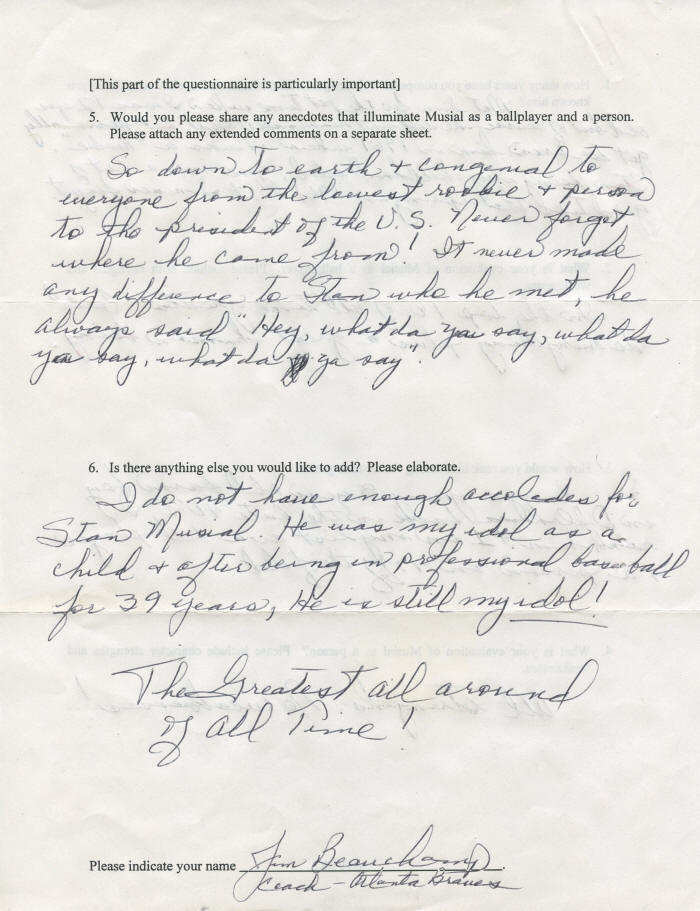 [This part of the questionnaire is particularly important]
5. Would you please share any anecdotes that illuminate Musial as a ballplayer and a person.
Please attach any extended comments on a separate sheet.
So down to earth + congenial to
everyone from the lowest rookie + person
to the president of the U.S. Never forgot
where he came from! It never made
any difference to Stan who he met, he
always said "Hey, whatda ya say, whatda
ya say, whatda ya say".
6. Is there anything else you would like to add? Please elaborate.
I do not have enough accolades for
Stan Musial. He was my idol as a
child + after being in professional baseball
for 39 years, He is still my idol!
The Greatest all around
of all Time!
Please indicate your name Jim Beauchamp
Coach - Atlanta Braves